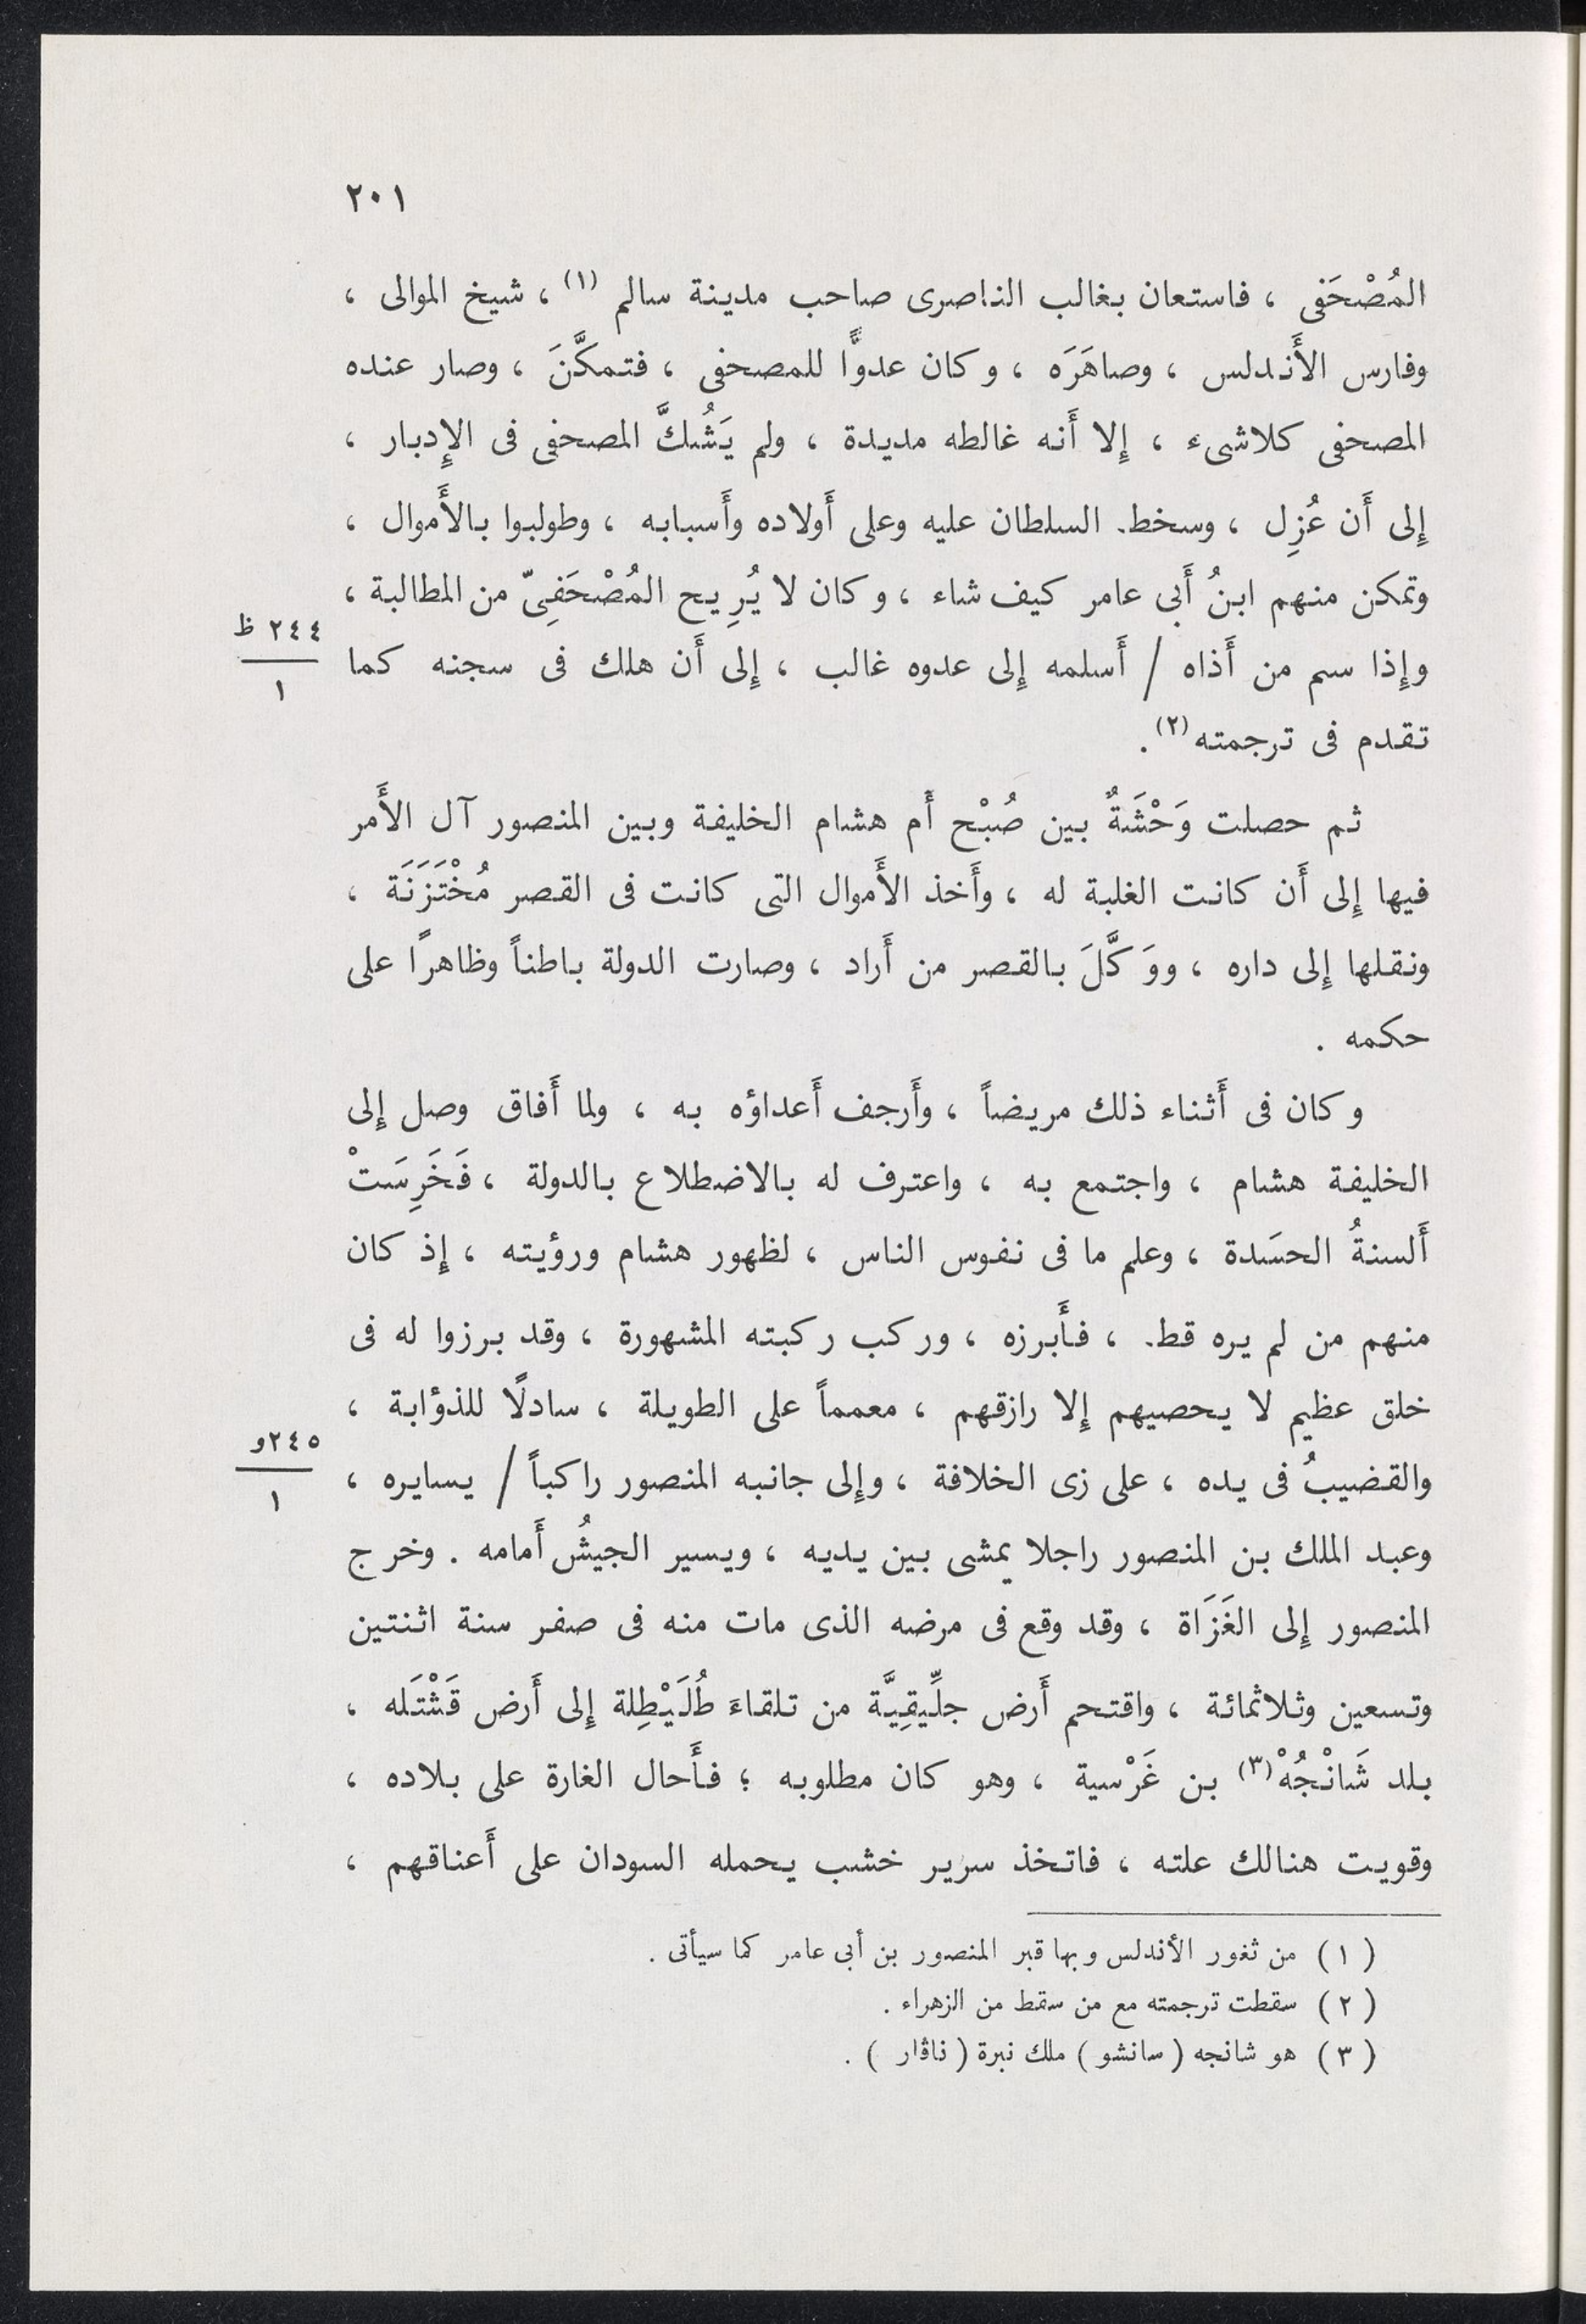 ٢٠١
المُصْحَفى ، فاستعان بغالب الناصرى صاحب مدينة سالم (١) ، شيخ الموالى ،
وفارس الأَندلس ، وصاهَرَه ، وكان عدوًّا للمصحفى ، فتمكَّنَ ، وصار عنده
المصحفى كلاشىء ، إِلا أَنه غالطه مديدة ، ولم يَشُكَّ المصحفى فى الإِدبار ،
إِلى أَن عُزِل ، وسخط السلطان عليه وعلى أَولاده وأَسبابه ، وطولبوا بالأَموال ،
وتمكن منهم ابنُ أَبى عامر كيف شاء ، وكان لا يُرِيح المُصْحَفِىّ من المطالبة ،
٢٤٤ ظ
١
وإِذا سم من أَذاه / أَسلمه إِلى عدوه غالب ، إِلى أَن هلك فى سجنه كما
تقدم فى ترجمته (٢) .
ثم حصلت وَحْشَةٌ بين صُبْح أَم هشام الخليفة وبين المنصور آل الأَمر
فيها إِلى أَن كانت الغلبة له ، وأَخذ الأَموال التى كانت فى القصر مُخْتَزَنَة ،
ونقلها إِلى داره ، ووَكَّلَ بالقصر من أَراد ، وصارت الدولة باطناً وظاهرًا على
حكمه .
وكان فى أَثناء ذلك مريضاً ، وأَرجف أَعداؤه به ، ولما أَفاق وصل إِلى
الخليفة هشام ، واجتمع به ، واعترف له بالاضطلاع بالدولة ، فَخَرِسَتْ
أَلسنةُ الحسَدة ، وعلم ما فى نفوس الناس ، لظهور هشام ورؤيته ، إِذ كان
منهم من لم يره قط ، فأَبرزه ، وركب ركبته المشهورة ، وقد برزوا له فى
خلق عظيم لا يحصيهم إِلا رازقهم ، معمماً على الطويلة ، سادلًا للذؤابة ،
٢٤٥و
١
والقضيبُ فى يده ، على زى الخلافة ، وإِلى جانبه المنصور راكباً / يسايره ،
وعبد الملك بن المنصور راجلا يمشى بين يديه ، ويسير الجيشُ أَمامه . وخرج
المنصور إِلى الغَزَاة ، وقد وقع فى مرضه الذى مات منه فى صفر سنة اثنتين
وتسعين وثلاثمائة ، واقتحم أَرض جلِّيقِيَّة من تلقاءَ طُلَيْطِلة إِلى أَرض قَشْتَله ،
بلد شَانْجُهْ (٣) بن غَرْسية ، وهو كان مطلوبه ؛ فأَحال الغارة على بلاده ،
وقويت هنالك علته ، فاتخذ سرير خشب يحمله السودان على أَعناقهم ،
( ١ ) من ثغور الأندلس وبها قبر المنصور بن أبى عامر كما سيأتى .
( ٢ ) سقطت ترجمته مع من سقط من الزهراء .
( ٣ ) هو شانجه ( سانشو ) ملك نبرة ( ناڤار ) .